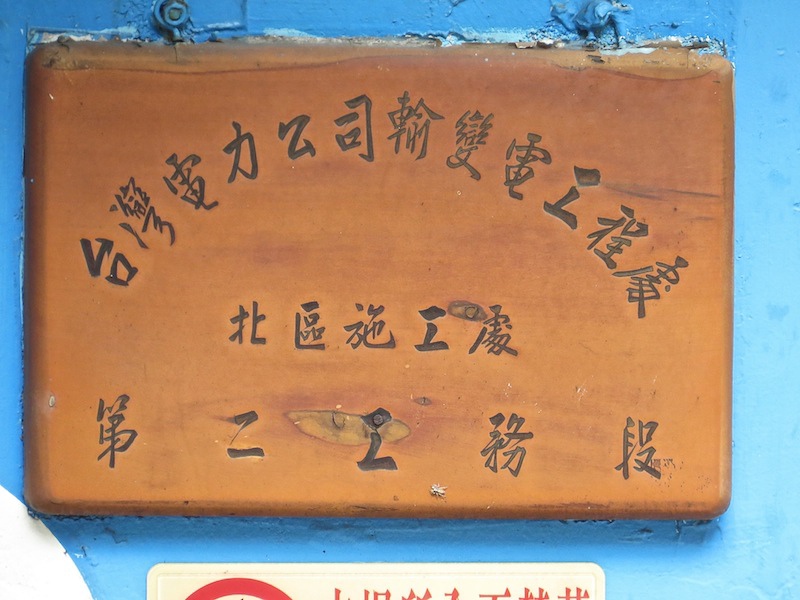 台灣電力公司輸變電工程處
北區施工處
第二工務段